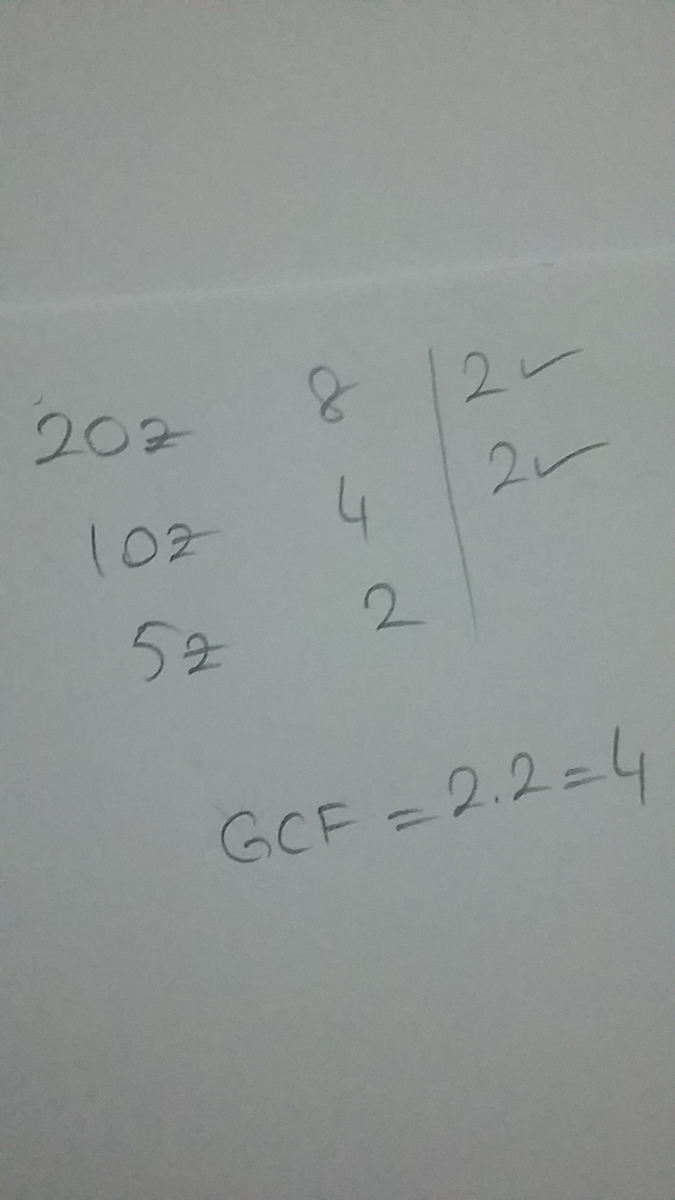 20z 8 | 2 ✓
10z 4 | 2 ✓
5z 2 |
GCF = 2.2 = 4